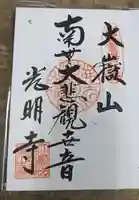 大嶽山
南無大悲観世音
光明寺